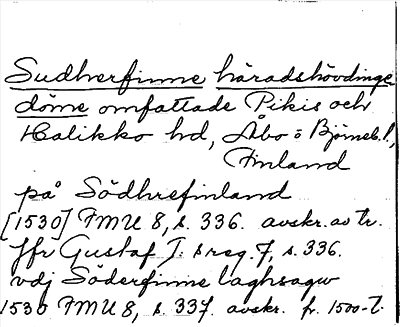 Sudherfinne häradshövdinge
döme omfattade Pikis och
Halikko hd, Åbo o Björneb. l,
Finland
på Södhrefinland
[1530] FMU 8, s. 336. avskr. av tr.
Jfr Gustaf I:s reg. 7, s. 336.
vdj Söderfinne laghsagw
1530 FMU 8, s. 337. avskr. fr. 1500-t.